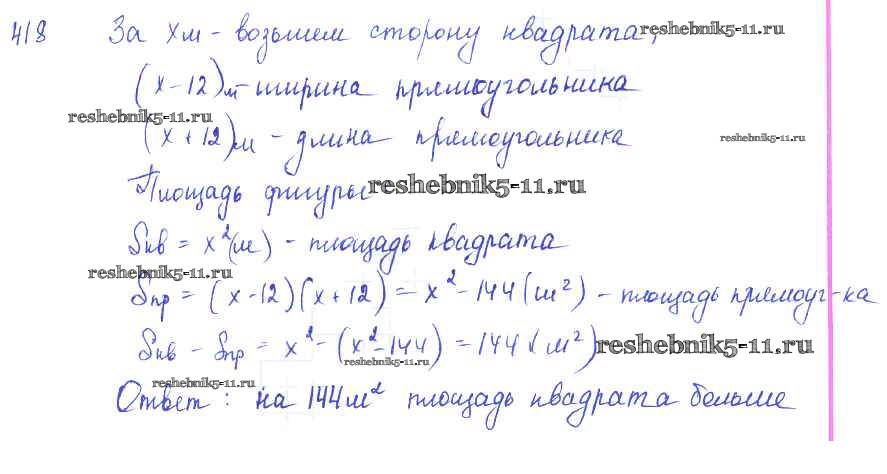 418 За x м - возьмем сторону квадрата, reshebnik5-11.ru
(x-12)м - ширина прямоугольника
reshebnik5-11.ru
(x+12)м - длина прямоугольника reshebnik5-11.ru
Площадь фигуры reshebnik5-11.ru
Sкв = x²(м) - площадь квадрата
reshebnik5-11.ru
Sпр = (x-12)(x+12) = x²-144(м²) - площадь прямоуг-ка
Sкв - Sпр = x²-(x²-144) = 144(м²) reshebnik5-11.ru
reshebnik5-11.ru
reshebnik5-11.ru
Ответ: на 144м² площадь квадрата больше